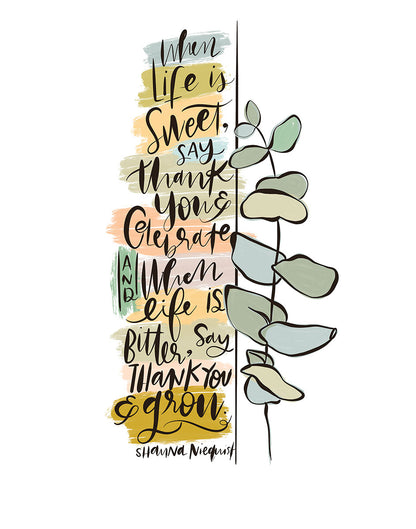 When
Life is
Sweet,
SAY
thank
You &
Celebrate
AND When
life IS
Bitter, Say
THANK YOU
& grow.
SHAUNA NIEQUIST